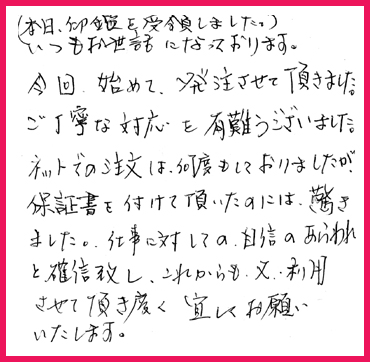 (本日、印鑑を受領しました。)
いつもお世話になっております。
今回、始めて、発注させて頂きました。
ご丁寧な対応を有難うございました。
ネットでの注文は、何度もしておりましたが、
保証書を付けて頂いたのには、驚き
ました。仕事に対しての、自信のあらわれ
と確信致し、これからも、又、利用
させて頂き度く宜しくお願い
いたします。